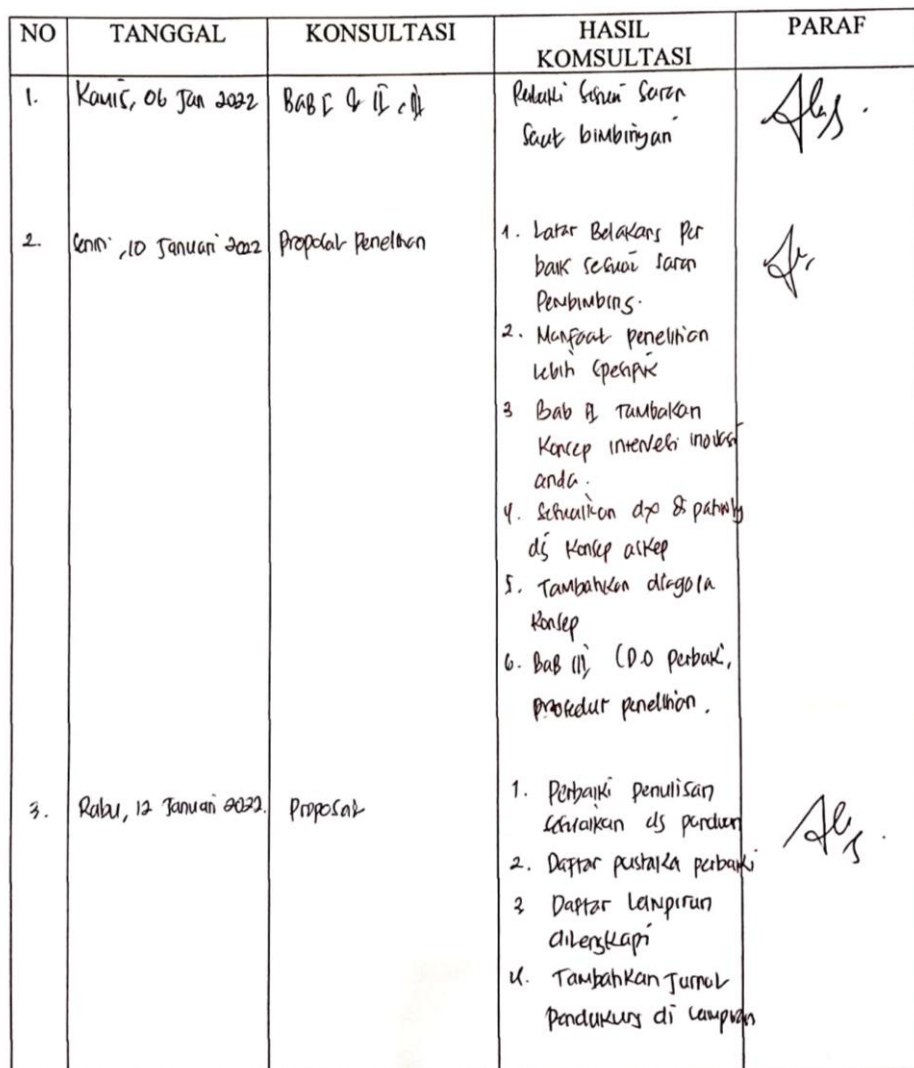 NO TANGGAL KONSULTASI HASIL PARAF
KOMSULTASI
1. Kamis, 06 Jan 2022 BAB I & II, III Perbaiki sesuai saran
saat bimbingan
2. Senin, 10 Januari 2022 Proposal Penelitian 1. Latar Belakang Per
baik sesuai saran
Pembimbing.
2. Manfaat penelitian
lebih spesipik
3 Bab II Tambakan
Konsep intervesi inovasi
anda.
4. Sesuaikan dx & patway
dg Konsep askep
5. Tambahkan
Konsep
6. BaB III, (D.O perbaiki,
prosedur penelitian.
3. Rabu, 12 Januari 2022. Proposal 1. Perbaiki penulisan
sesuaikan dg panduan
2. Daftar pustaka perbaiki
3 Daftar Lampiran
dilengkapi
4. Tambahkan Jurnal
Pendukung di lampiran